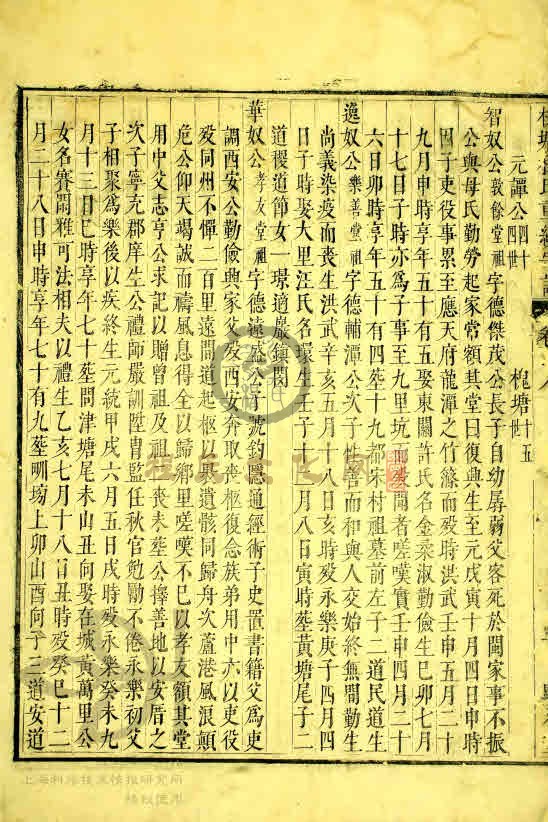 元諢公四十四世 槐塘十五世
智奴公敦餘堂祖字德傑茂公長子自幼孱弱父客死於閩家事不振
公與母氏勤勞起家常額其堂曰復典生至元戊寅十月四日申時
因子吏役事累至應天府龍潭之竹篠而殁時洪武壬申五月二十
九月申時享年五十有五娶東關許氏名金柔淑勤儉生己卯七月
十七日子時亦為子事至九里坑而殁聞者嗟嘆實壬申四月二十
六日卯時享年五十有四塟十九都宋村祖墓前左子二道民道生
逸奴公樂善堂祖字德輔潭公次子性善而和與人交始終無間勤生
尚義染疫而喪生洪武辛亥五月十八日亥時殁永樂庚子四月四
日子時娶大里汪氏名環生壬子十一月八日寅時塟黄塘尾子二
道稷道節女一璟適巖鎮閔
華奴公孝友堂祖字德遠盛公子號鈞隱通經術子史置書籍父為吏
謫西安公勤儉興家父殁西安奔取喪柩復念族弟用中六以吏役
殁同州不憚二百里遠間道起柩以昇遺骸同歸舟次蘆港風浪顛
危公仰天竭誠而禱風息得全以歸鄉里嗟嘆不已以孝友額其堂
用中父志亨公求記以贈曾祖及祖三喪未塟公擇善地以安厝之
次子寧充郡庠生公禮師嚴訓陞胄監任秋官勉勵不倦永樂初父
子相聚為樂後以疾終生元統甲戌六月五日戌時殁永樂癸未九
月十三日巳時享年七十塟問津塘尾未山丑向娶在城黄萬里公
女名賽閏雅可法相夫以禮生乙亥七月十八日丑時殁癸巳十二
月二十八日申時享年七十有九塟䏢塝上卯山酉向子三道安道
上海科學技術情報研究所